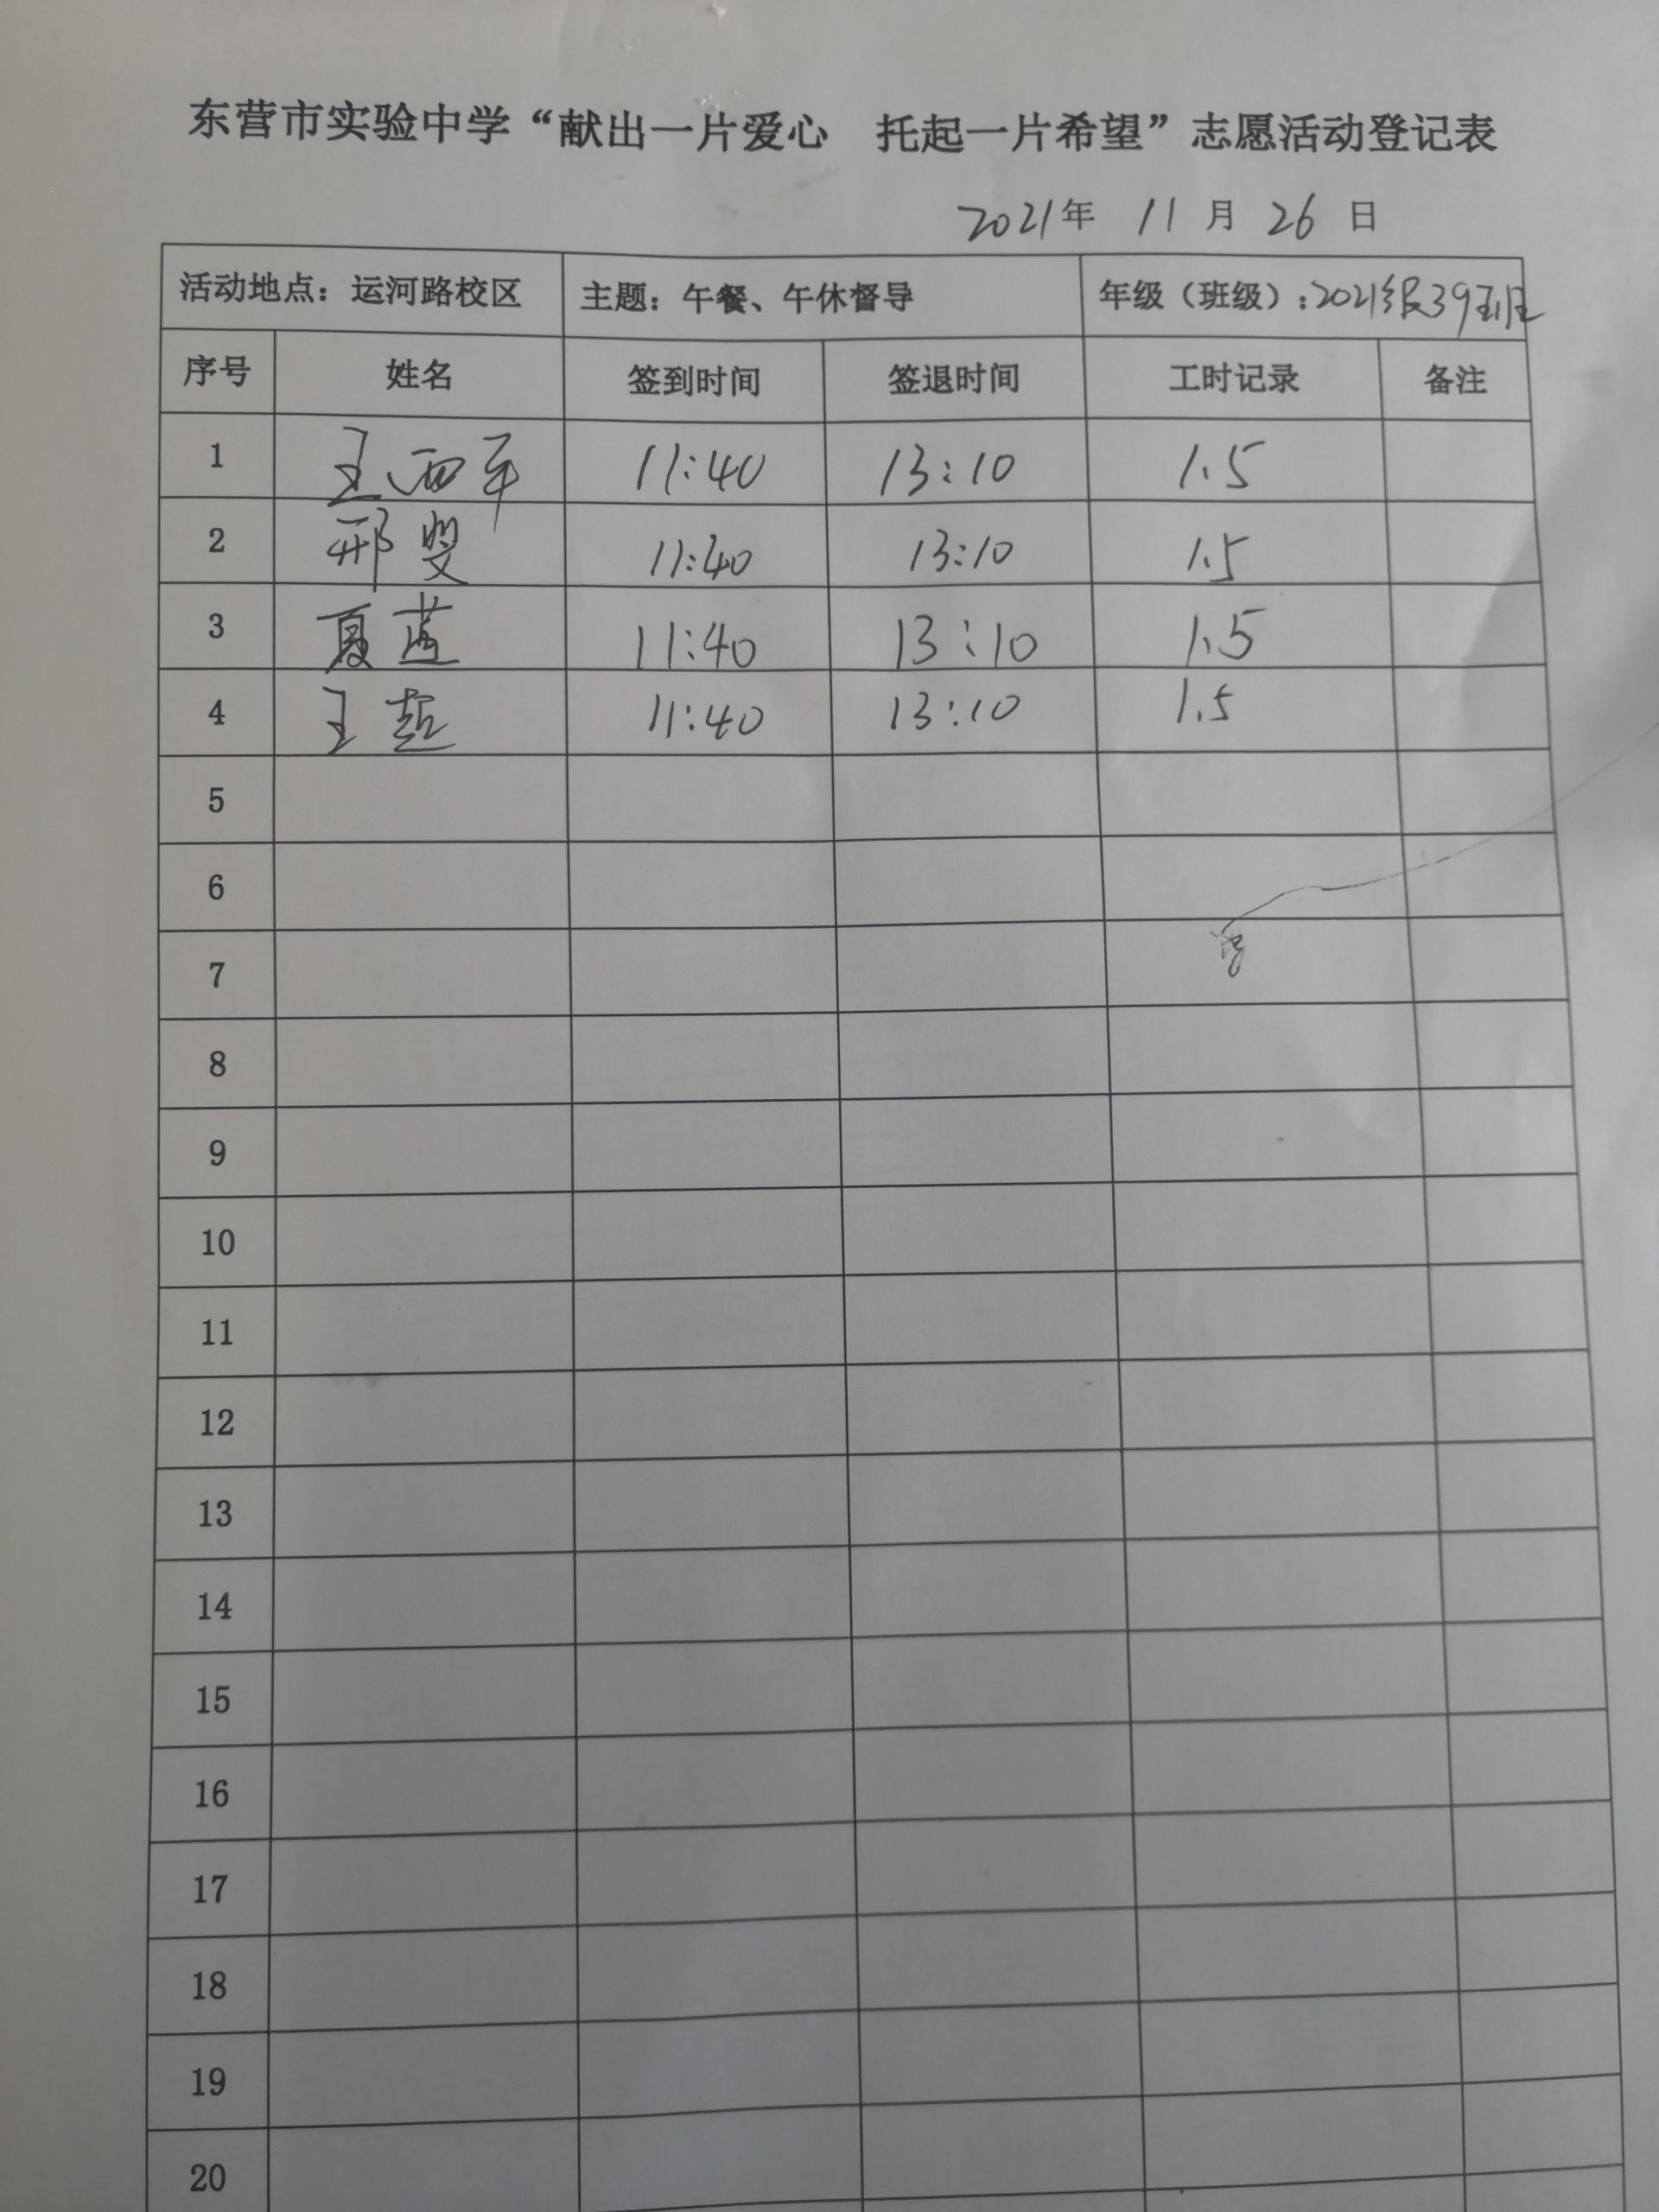 东营市实验中学“献出一片爱心 托起一片希望”志愿活动登记表
2021年 11 月 26 日
活动地点：运河路校区 主题：午餐、午休督导 年级（班级）：2021级39班
序号 姓名 签到时间 签退时间 工时记录 备注
1 王西军 11:40 13:10 1.5
2 邢 11:40 13:10 1.5
3 夏蓝 11:40 13:10 1.5
4 王超 11:40 13:10 1.5
5
6
7
8
9
10
11
12
13
14
15
16
17
18
19
20